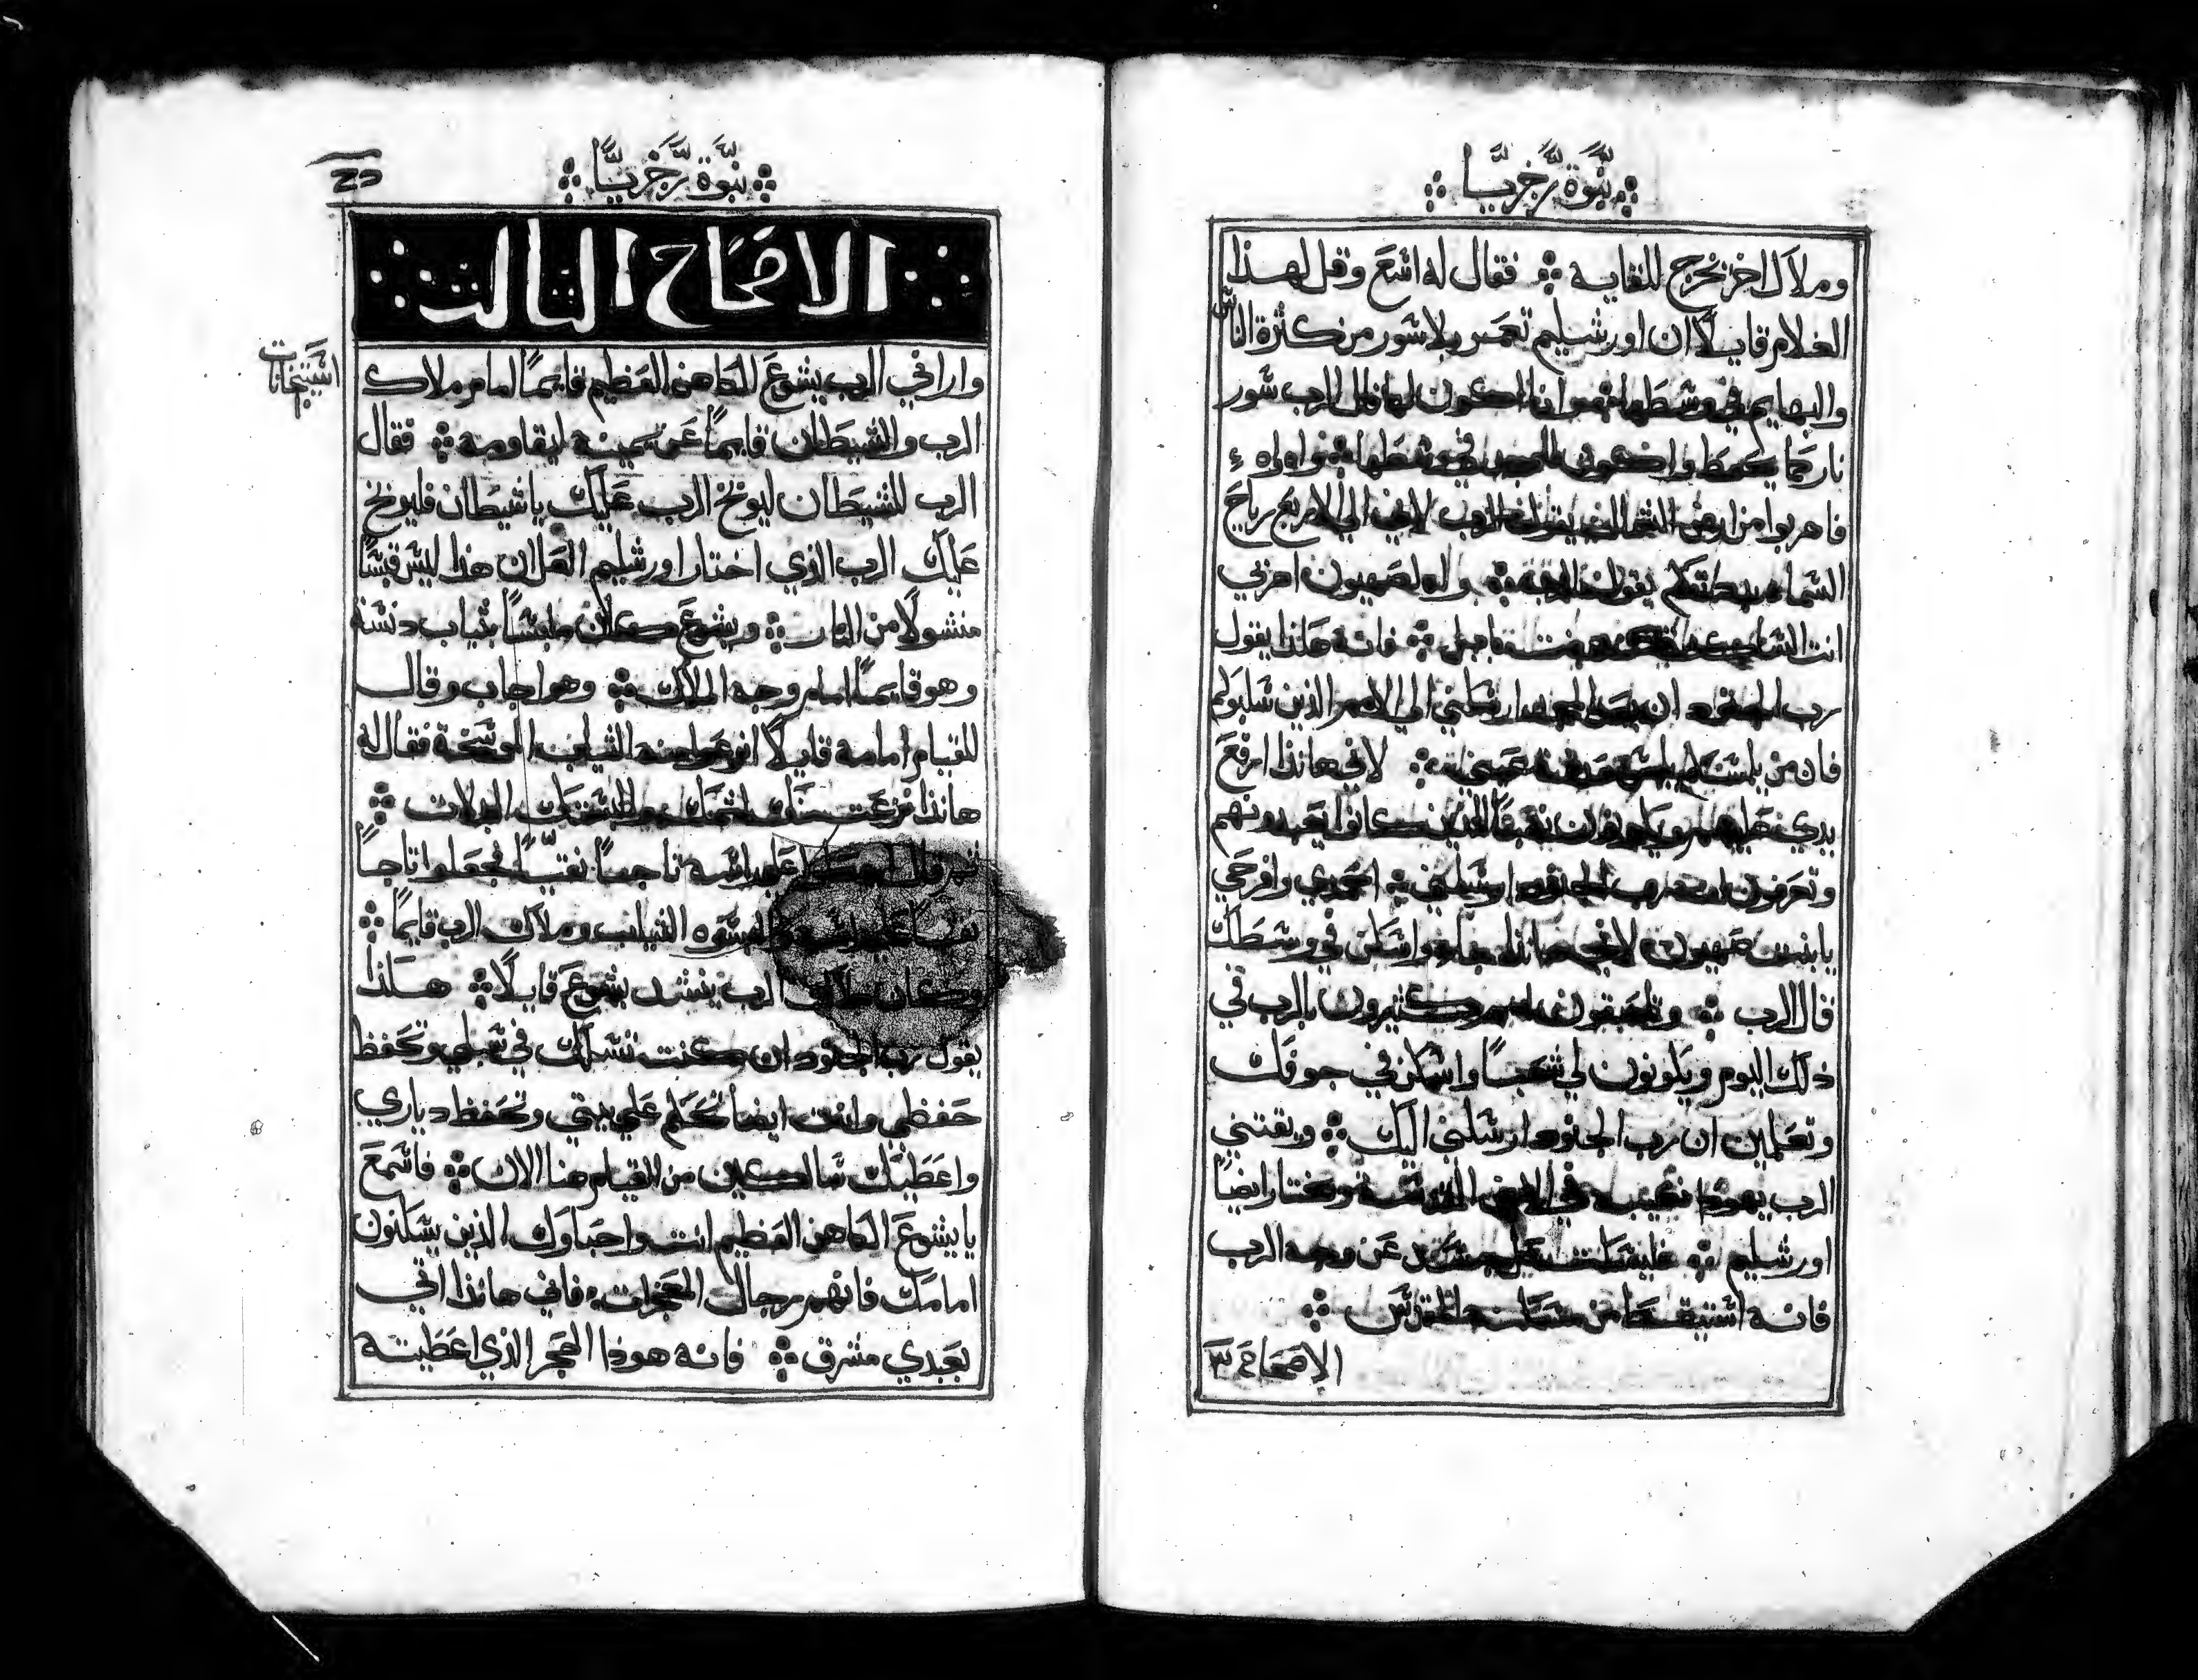 نبوة زخريا
وملاك اخر يخرج للقايه فقال له اشع وقل لهذا
الغلام قايلًا ان اورشليم تعمر بلا شور من كثرة الناش
والبهايم في وشطها وانا اكون لها قال الرب شور
نار كما يحيط واكون للمجد في وشطها واه واه
فاهربوا من ارض الشمال يقول الرب لاني الي الاربع رياح
الشما بددتكم يقول الرب واه لصهيون اهربي
انت الشاكنه بنت بابل فانه هكذا يقول
رب الجنود ان بعد المجد ارشلني الي الامم الذين شلبوكم
فان من يلمشكم يلمش حدقة عيني لاني هانذا ارفع
يدي عليهم ويكونون نهبًا للذين كانوا يتعبدونهم
وتعرفون ان رب الجنود ارشلني امجدي وافرحي
يا بنت صهيون لاني هانذا جاي واشكن في وشطك
قال الرب وتلتصقون امم كثيرون بالرب في
ذلك اليوم ويكونون لي شعبًا واشكن في جوفك
وتعلمين ان رب الجنود ارشلني اليك ويقتني
الرب يهوذا نصيبه في الارض المقدشه ويختار ايضًا
اورشليم فليشكت كل جشد عن وجه الرب
فانه اشتيقظ من مشكنه المقدش
الاصحاح ٣
نبوة زخريا
الاصحاح الثالث
واراني الرب يشوع الكاهن العظيم قايمًا امام ملاك
الرب والشيطان قايمًا عن يمينه ليقاومه فقال
الرب للشيطان ليوبخ الرب عليك يا شيطان فليوبخ
عليك الرب الذي اختار اورشليم العل ان هذا ليش قبشًا
منشولًا من النار ويشوع كان ملبشًا بثياب دنشة
وهو قايمًا امام وجه الملاك وهو اجاب وقال
للقيام امامه قايلًا انزعوا عنه الثياب الوشخة فقال له
هانذا نزعت عنك اثمك والبشتك البدلات
ثم قال اجعلوا علي راشه تاجًا نقيًا فجعلوا تاجًا
نقيًا علي راشه والبشوه الثياب وملاك الرب قايمًا
وكان ملاك الرب ينشد يشوع قايلًا هكذا
يقول رب الجنود ان كنت تشلك في شبلي وتحفظ
حفظي وانت ايضًا تحكم علي بيتي وتحفظ دياري
واعطيك شالكين من القيام هنا الان فاشمع
يا يشوع الكاهن العظيم انت واحباوك الذين يشكنون
امامك فانهم رجال المعجزات فاني هانذا اتي
بعبدي مشرق فانه هوذا الحجر الذي اعطيته